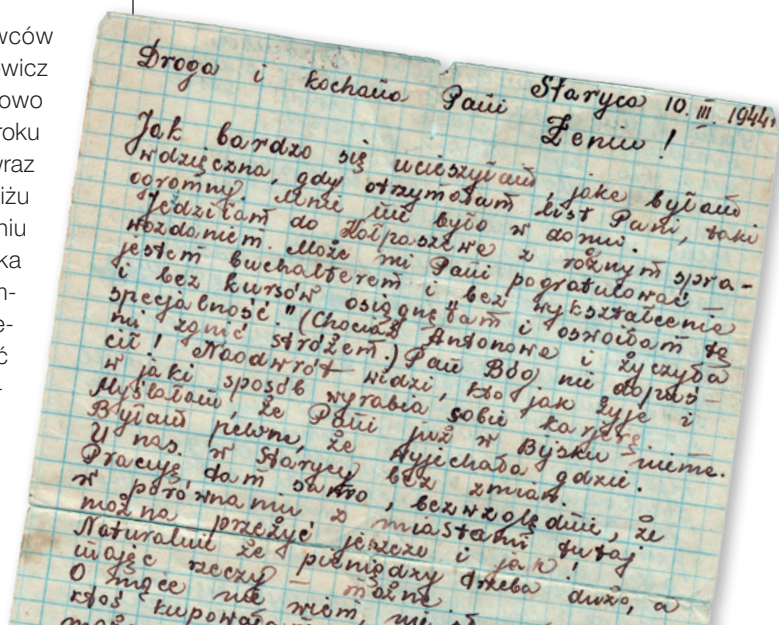 wców
owicz
owo
roku
wraz
iżu
niu
ka
n-
e-
ć
-
Staryca 10. III. 1944.
Droga i kochana Pani Żeniu!
Jak bardzo się ucieszyłam, jake byłam
wdzięczna, gdy otrzymałam list Pani, taki
ogromny. Mnie nie było w domu.
Jedziłam do Kołpaszewe z różnym spra-
wozdaniem. Może mi Pani pogratulować –
jestem buchalterem i bez wykształcenie
i bez kursów osiągnęłam i oswoiłam tę
"specjalność." (Chociaż Antonowe i życzyła
mi zgnić stróżem.) Pan Bóg nie dopuś-
cił! Naodwrót widzi, kto jak żyje i
w jaki sposób wyrabia sobie karjerę.
Myślałam, że Pani już w Bijsku nieme.
Byłam pewne, że wyjechała gdzie.
U nas w Starycy bez zmian.
Pracuję tam samo, bezwzględnie, że
w porównaniu z miastami tutaj
można przeżyć jeszcze i jak!
Naturalnie że pieniędzy trzeba dużo, a
mając rzeczy – możne
O mące nie wiem,
ktoś kupował